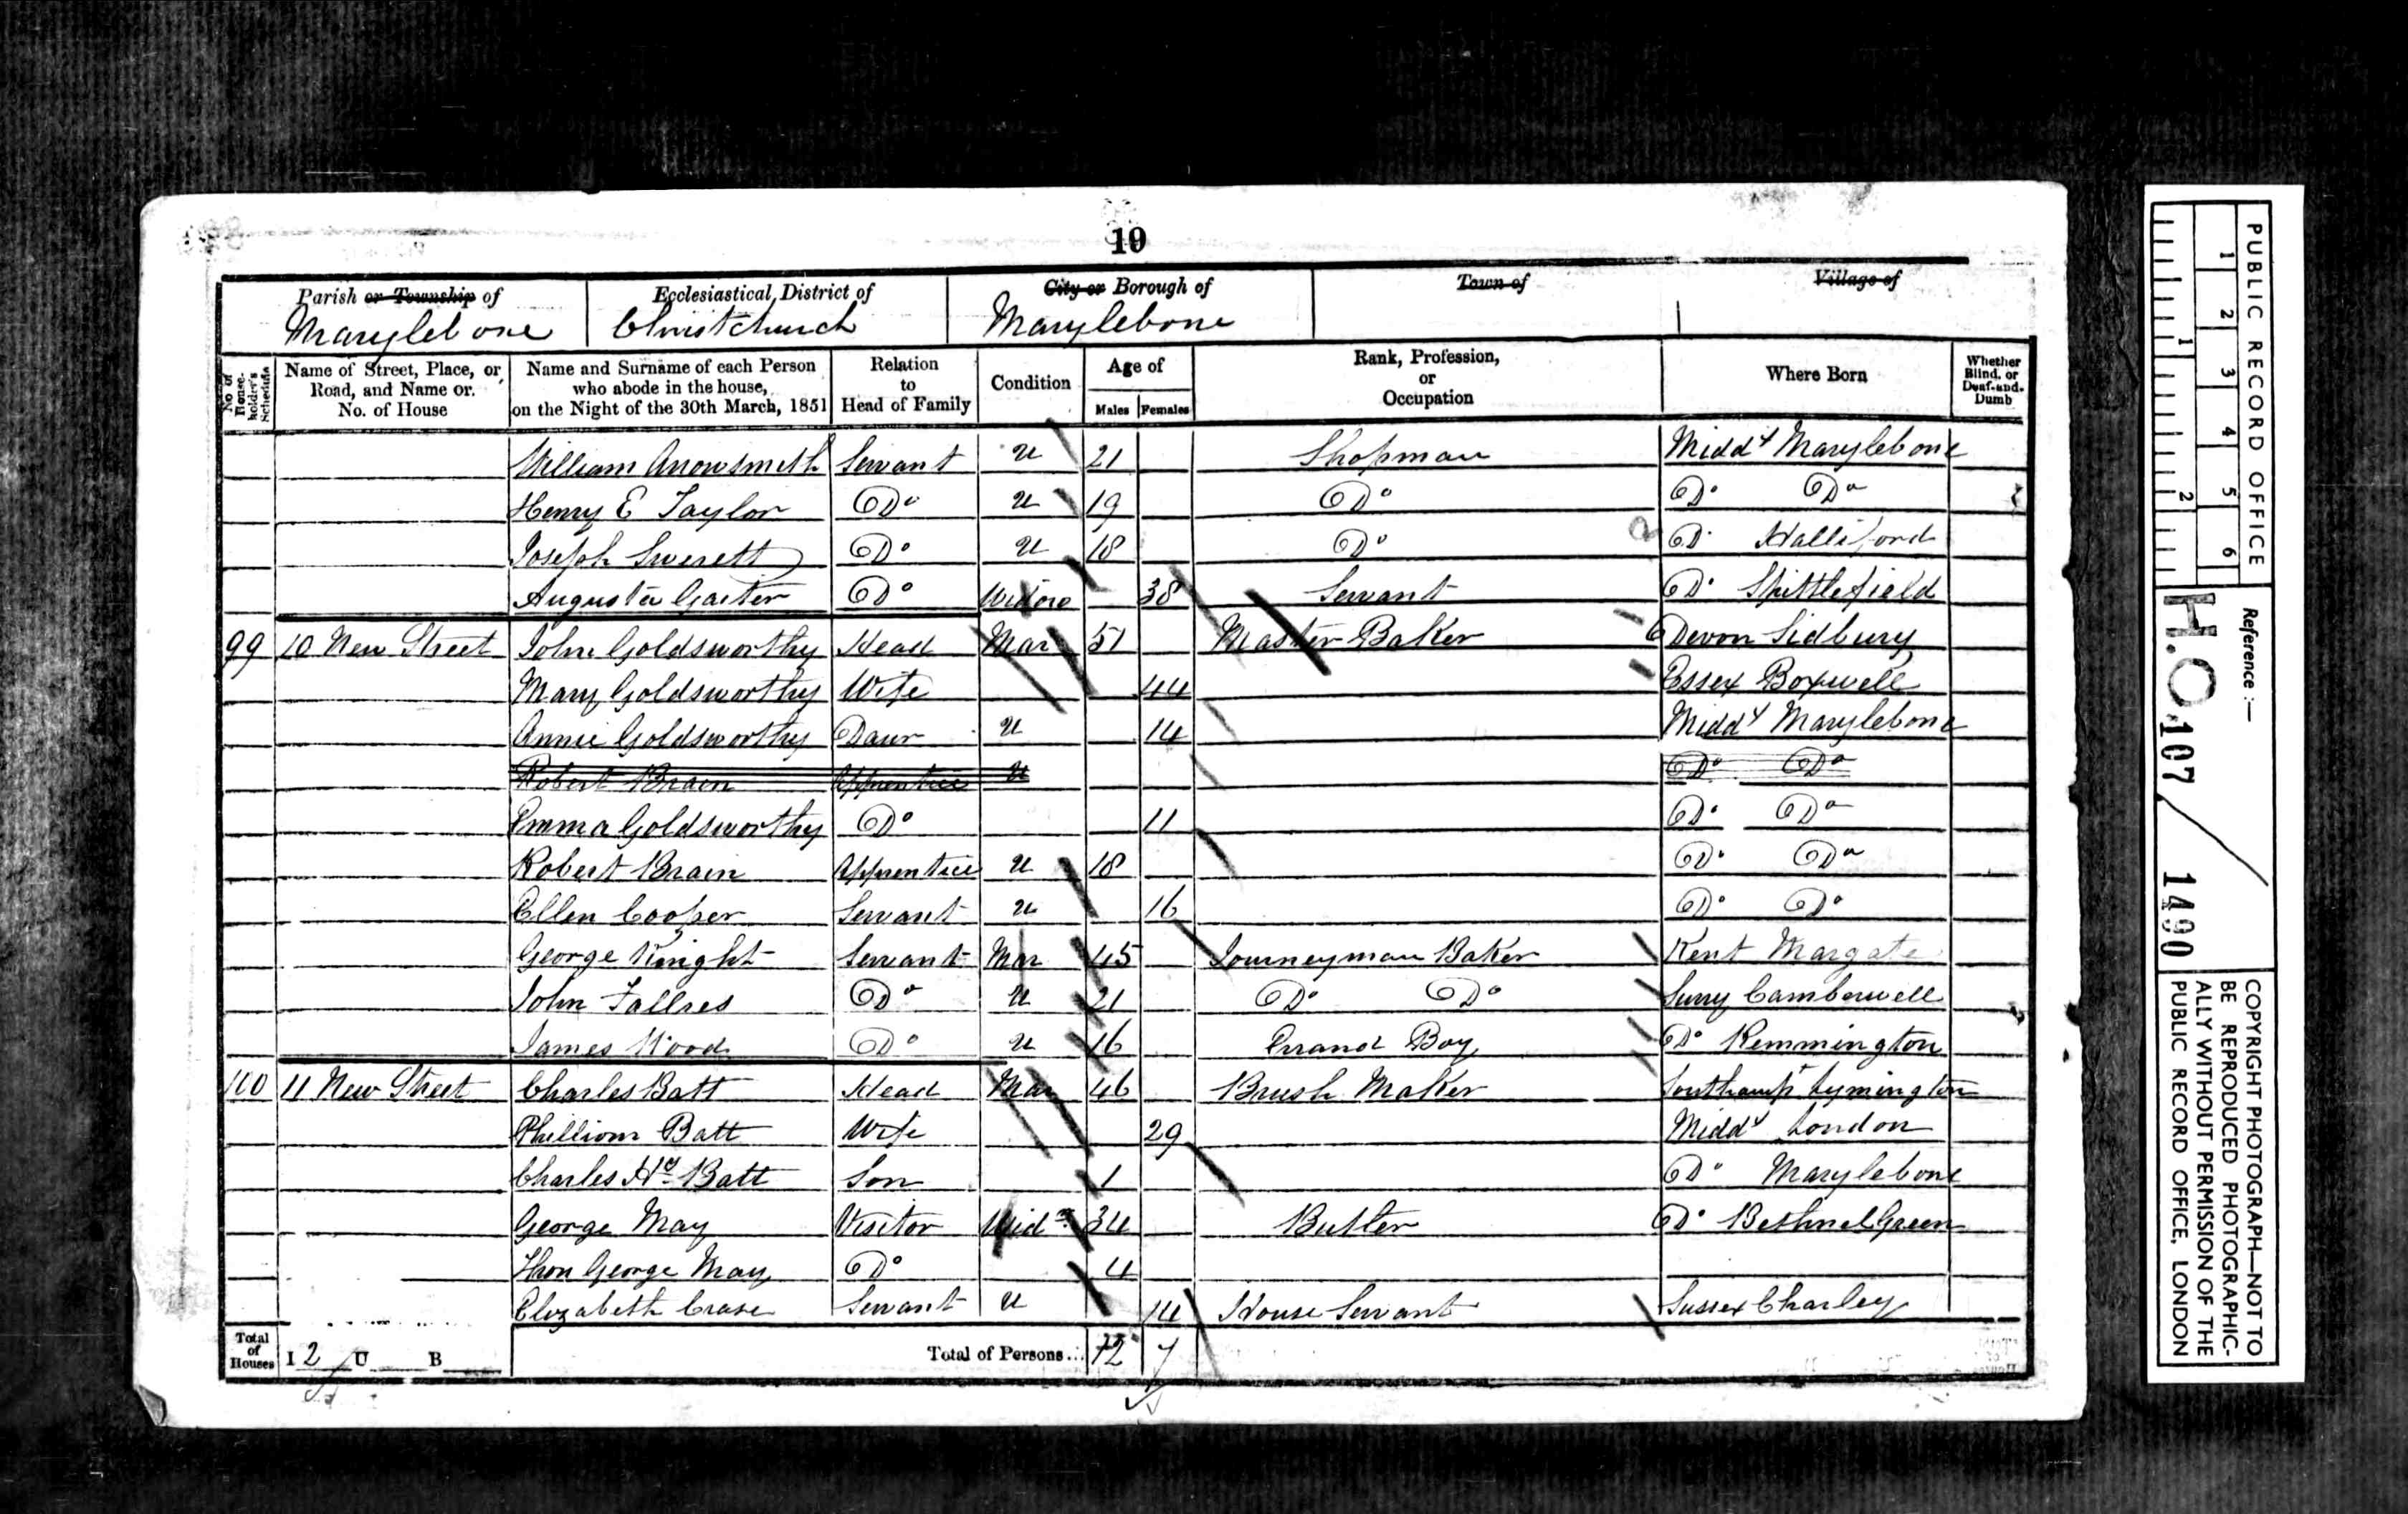 19
Parish or Township of
Marylebone
Ecclesiastical District of
Christchurch
City or Borough of
Marylebone
Town of
Village of
No of House-holder's Schedule
Name of Street, Place, or Road, and Name or No. of House
Name and Surname of each Person who abode in the house, on the Night of the 30th March, 1851
Relation to Head of Family
Condition
Age of
Males Females
Rank, Profession, or Occupation
Where Born
Whether Blind, or Deaf-and-Dumb
William Arrowsmith Servant U 21 Shopman Middx Marylebone
Henry E Taylor Do U 19 Do Do Do
Joseph Swerett Do U 18 Do Do Halliford
Augusta Garter Do Widow 38 Servant Do Spittlefield
99 10 New Street John Goldsworthy Head Mar 51 Master Baker Devon Sidbury
Mary Goldsworthy Wife 44 Essex Boxwell
Annie Goldsworthy Daur U 14 Middx Marylebone
Robert Brain Apprentice U Do Do
Emma Goldsworthy Do 11 Do Do
Robert Brain Apprentice U 18 Do Do
Ellen Cooper Servant U 16 Do Do
George Knight Servant Mar 45 Journeyman Baker Kent Margate
John Fallres Do U 21 Do Do Surry Camberwell
James Wood Do U 16 Errand Boy Do Kemmington
100 11 New Street Charles Batt Head Mar 46 Brush Maker Southampt Lymington
Phillion Batt Wife 29 Middx London
Charles Hy Batt Son 1 Do Marylebone
George May Visitor Widr 34 Butler Do Bethnel Green
Thon George May Do 4
Elizabeth Crase Servant U 14 House Servant Sussex Charley
Total of Houses I 2 U B Total of Persons... 12 7
PUBLIC RECORD OFFICE
1 2 3 4 5 6
1 2
Reference :—
H.O. 107 / 1490
COPYRIGHT PHOTOGRAPH—NOT TO
BE REPRODUCED PHOTOGRAPHIC-
ALLY WITHOUT PERMISSION OF THE
PUBLIC RECORD OFFICE, LONDON